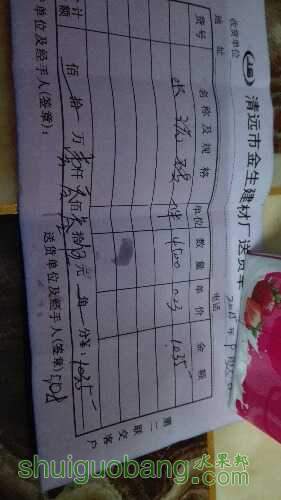 清远市金生建材厂送货单
收货单位
地址
电话
2015年9月
货号 名称及规格 单位 数量 单价 金额
水泥砖 件 4500 0.23 1035
合计金额 佰 拾 万 壹仟 零佰 叁拾 5元 角 分 ¥: 1035
收货单位及经手人(签章): 送货单位及经手人(签章):
第二联交客户
水果邦
shuiguobang.com